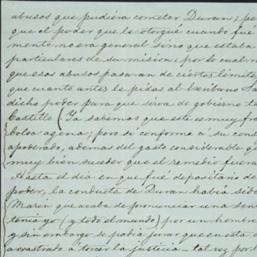 abusos que pudiera cometer Duran; pe
que el poder que le otorgué cuando fué
mente no era general sino que estaba
particulares de su mision; por lo cual no
que esos abusos pasaran de ciertos límites
que cuanto antes le pidas al
dicho poder para que sirva de gobierno
Castillo (Ya sabemos que este es muy fr
agena; pero si conforme á su cons
apoderado, ademas del gasto considerable q
muy bien suceder que el remedio fuera
Hasta el dia en que fué depositario de
poder, la conducta de Duran habia sido
Marin que acaba de pronunciar una sen
tenia yo (y todo el mundo) por un hombre
y sin embargo se podia jurar que en esta
arrastrado á torcer la justicia tal vez por